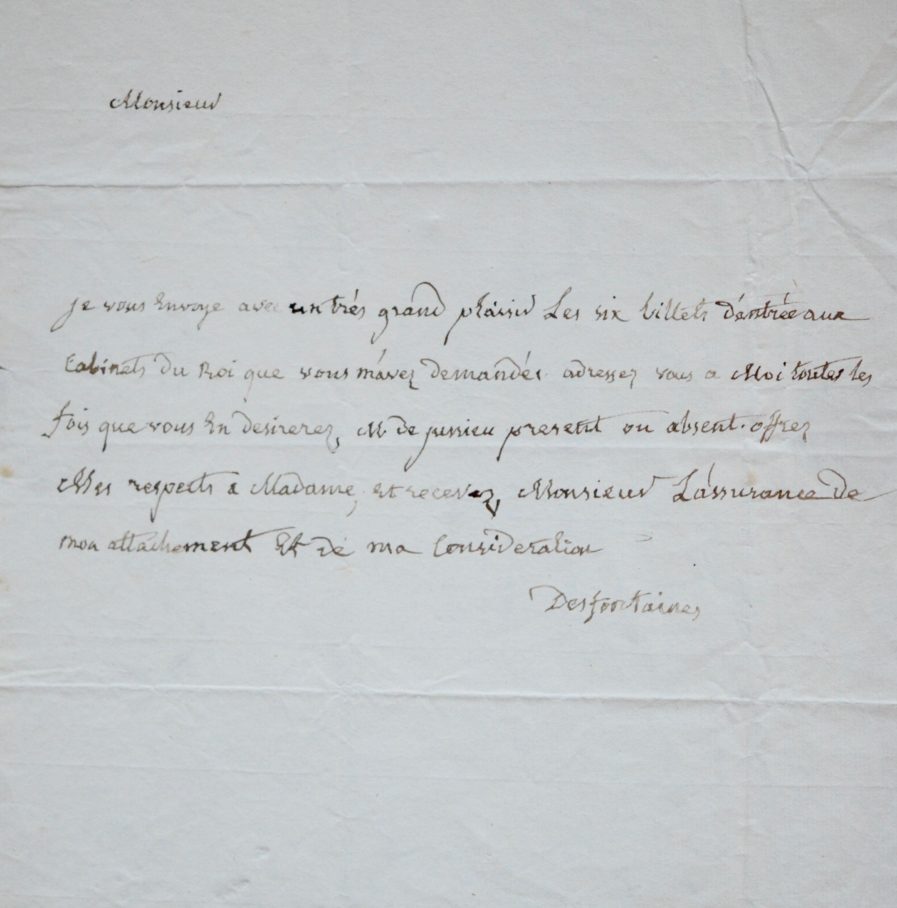 Monsieur
je vous Envoye avec un trés grand plaisir Les six billets d'entrée aux
Cabinets du Roi que vous m'avez demandés. adressez vous a Moi toutes les
fois que vous En desirerez, M. de jussieu present ou absent. offrez
Mes respects a Madame, Et recevez, Monsieur L'assurance de
mon attachement Et de ma Consideration
Desfontaines